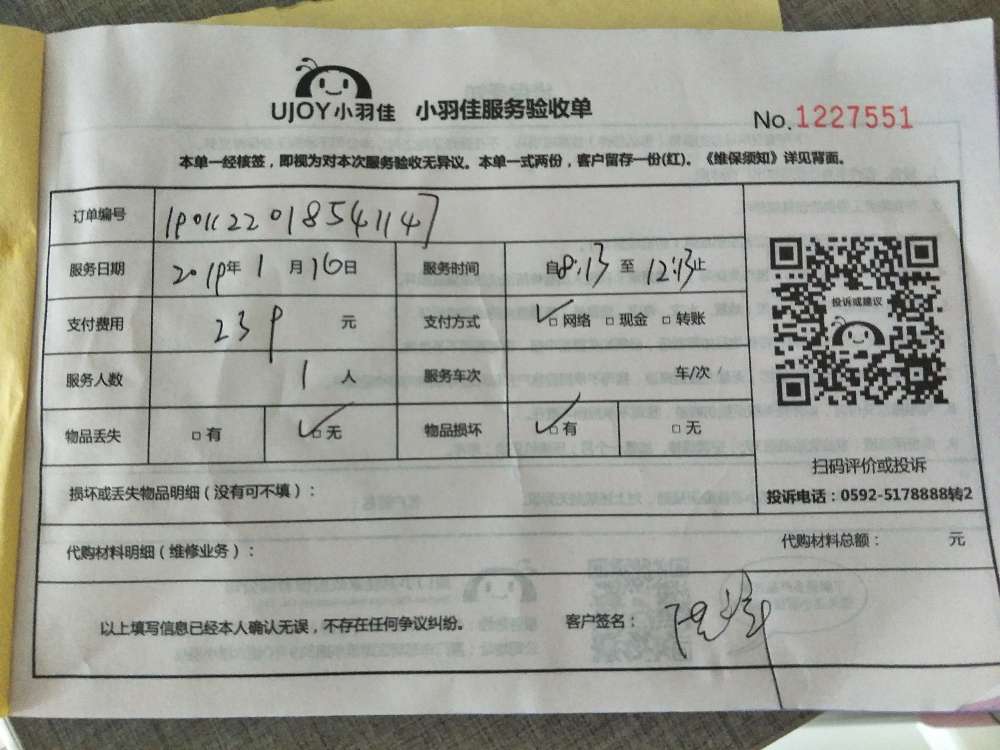 UJOY小羽佳 小羽佳服务验收单
No.1227551
本单一经核签，即视为对本次服务验收无异议。本单一式两份，客户留存一份(红)。《维保须知》详见背面。
订单编号
服务日期 2019年1月16日 服务时间 自8:13至12:13止
支付费用 239元 支付方式 ✓□网络 □现金 □转账
服务人数 1人 服务车次 车/次
物品丢失 □有 ✓□无 物品损坏 ✓□有 □无
投诉或建议
扫码评价或投诉
投诉电话：0592-5178888转2
损坏或丢失物品明细（没有可不填）：
代购材料明细（维修业务）： 代购材料总额： 元
以上填写信息已经本人确认无误，不存在任何争议纠纷。 客户签名：